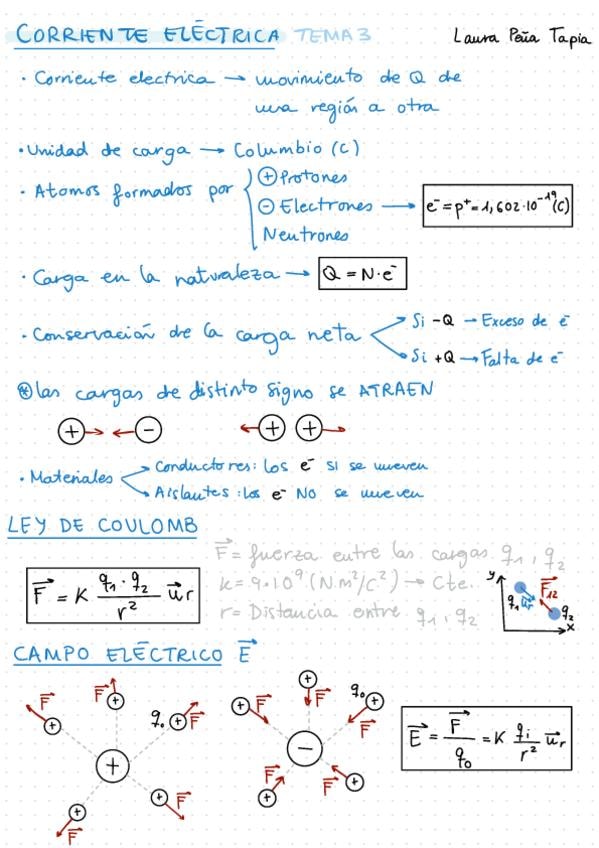 CORRIENTE ELÉCTRICA TEMA 3 Laura Peña Tapia
· Corriente electrica → movimiento de Q de
una región a otra
· Unidad de carga → Columbio (C)
· Atomos formados por { ⊕ Protones
⊖ Electrones → e⁻ = p⁺ = 1,602·10⁻¹⁹ (C)
Neutrones
· Carga en la naturaleza → Q = N·e⁻
· Conservación de la carga neta
Si -Q → Exceso de e⁻
Si +Q → Falta de e⁻
⊛ las cargas de distinto signo se ATRAEN
+ - + +
· Materiales
Conductores: los e⁻ SI se mueven
Aislantes: los e⁻ NO se mueven
LEY DE COULOMB
F⃗ = K (q1 · q2 / r²) u⃗r
F⃗ = fuerza entre las cargas q1, q2
k = 9·10⁹ (N·m²/C²) → Cte.
r = Distancia entre q1, q2
y q1 u⃗r F⃗12 q2 x
CAMPO ELÉCTRICO E⃗
F⃗ + F⃗ + q0 + F⃗ + + F⃗ + F⃗
+ F⃗ + F⃗ q0 + F⃗ - F⃗ + F⃗ +
E⃗ = F⃗ / q0 = K (qi / r²) u⃗r